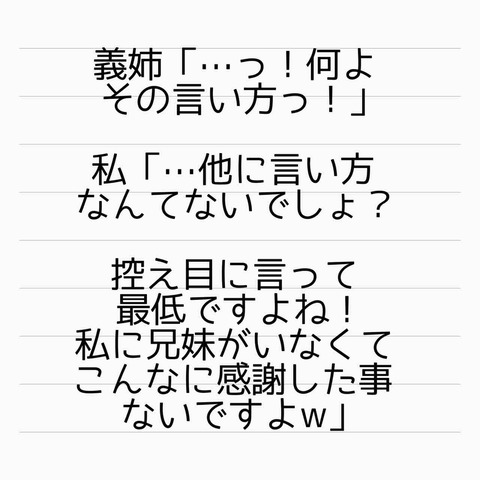 義姉「…っ！何よ
その言い方っ！」
私「…他に言い方
なんてないでしょ？
控え目に言って
最低ですよね！
私に兄妹がいなくて
こんなに感謝した事
ないですよw」